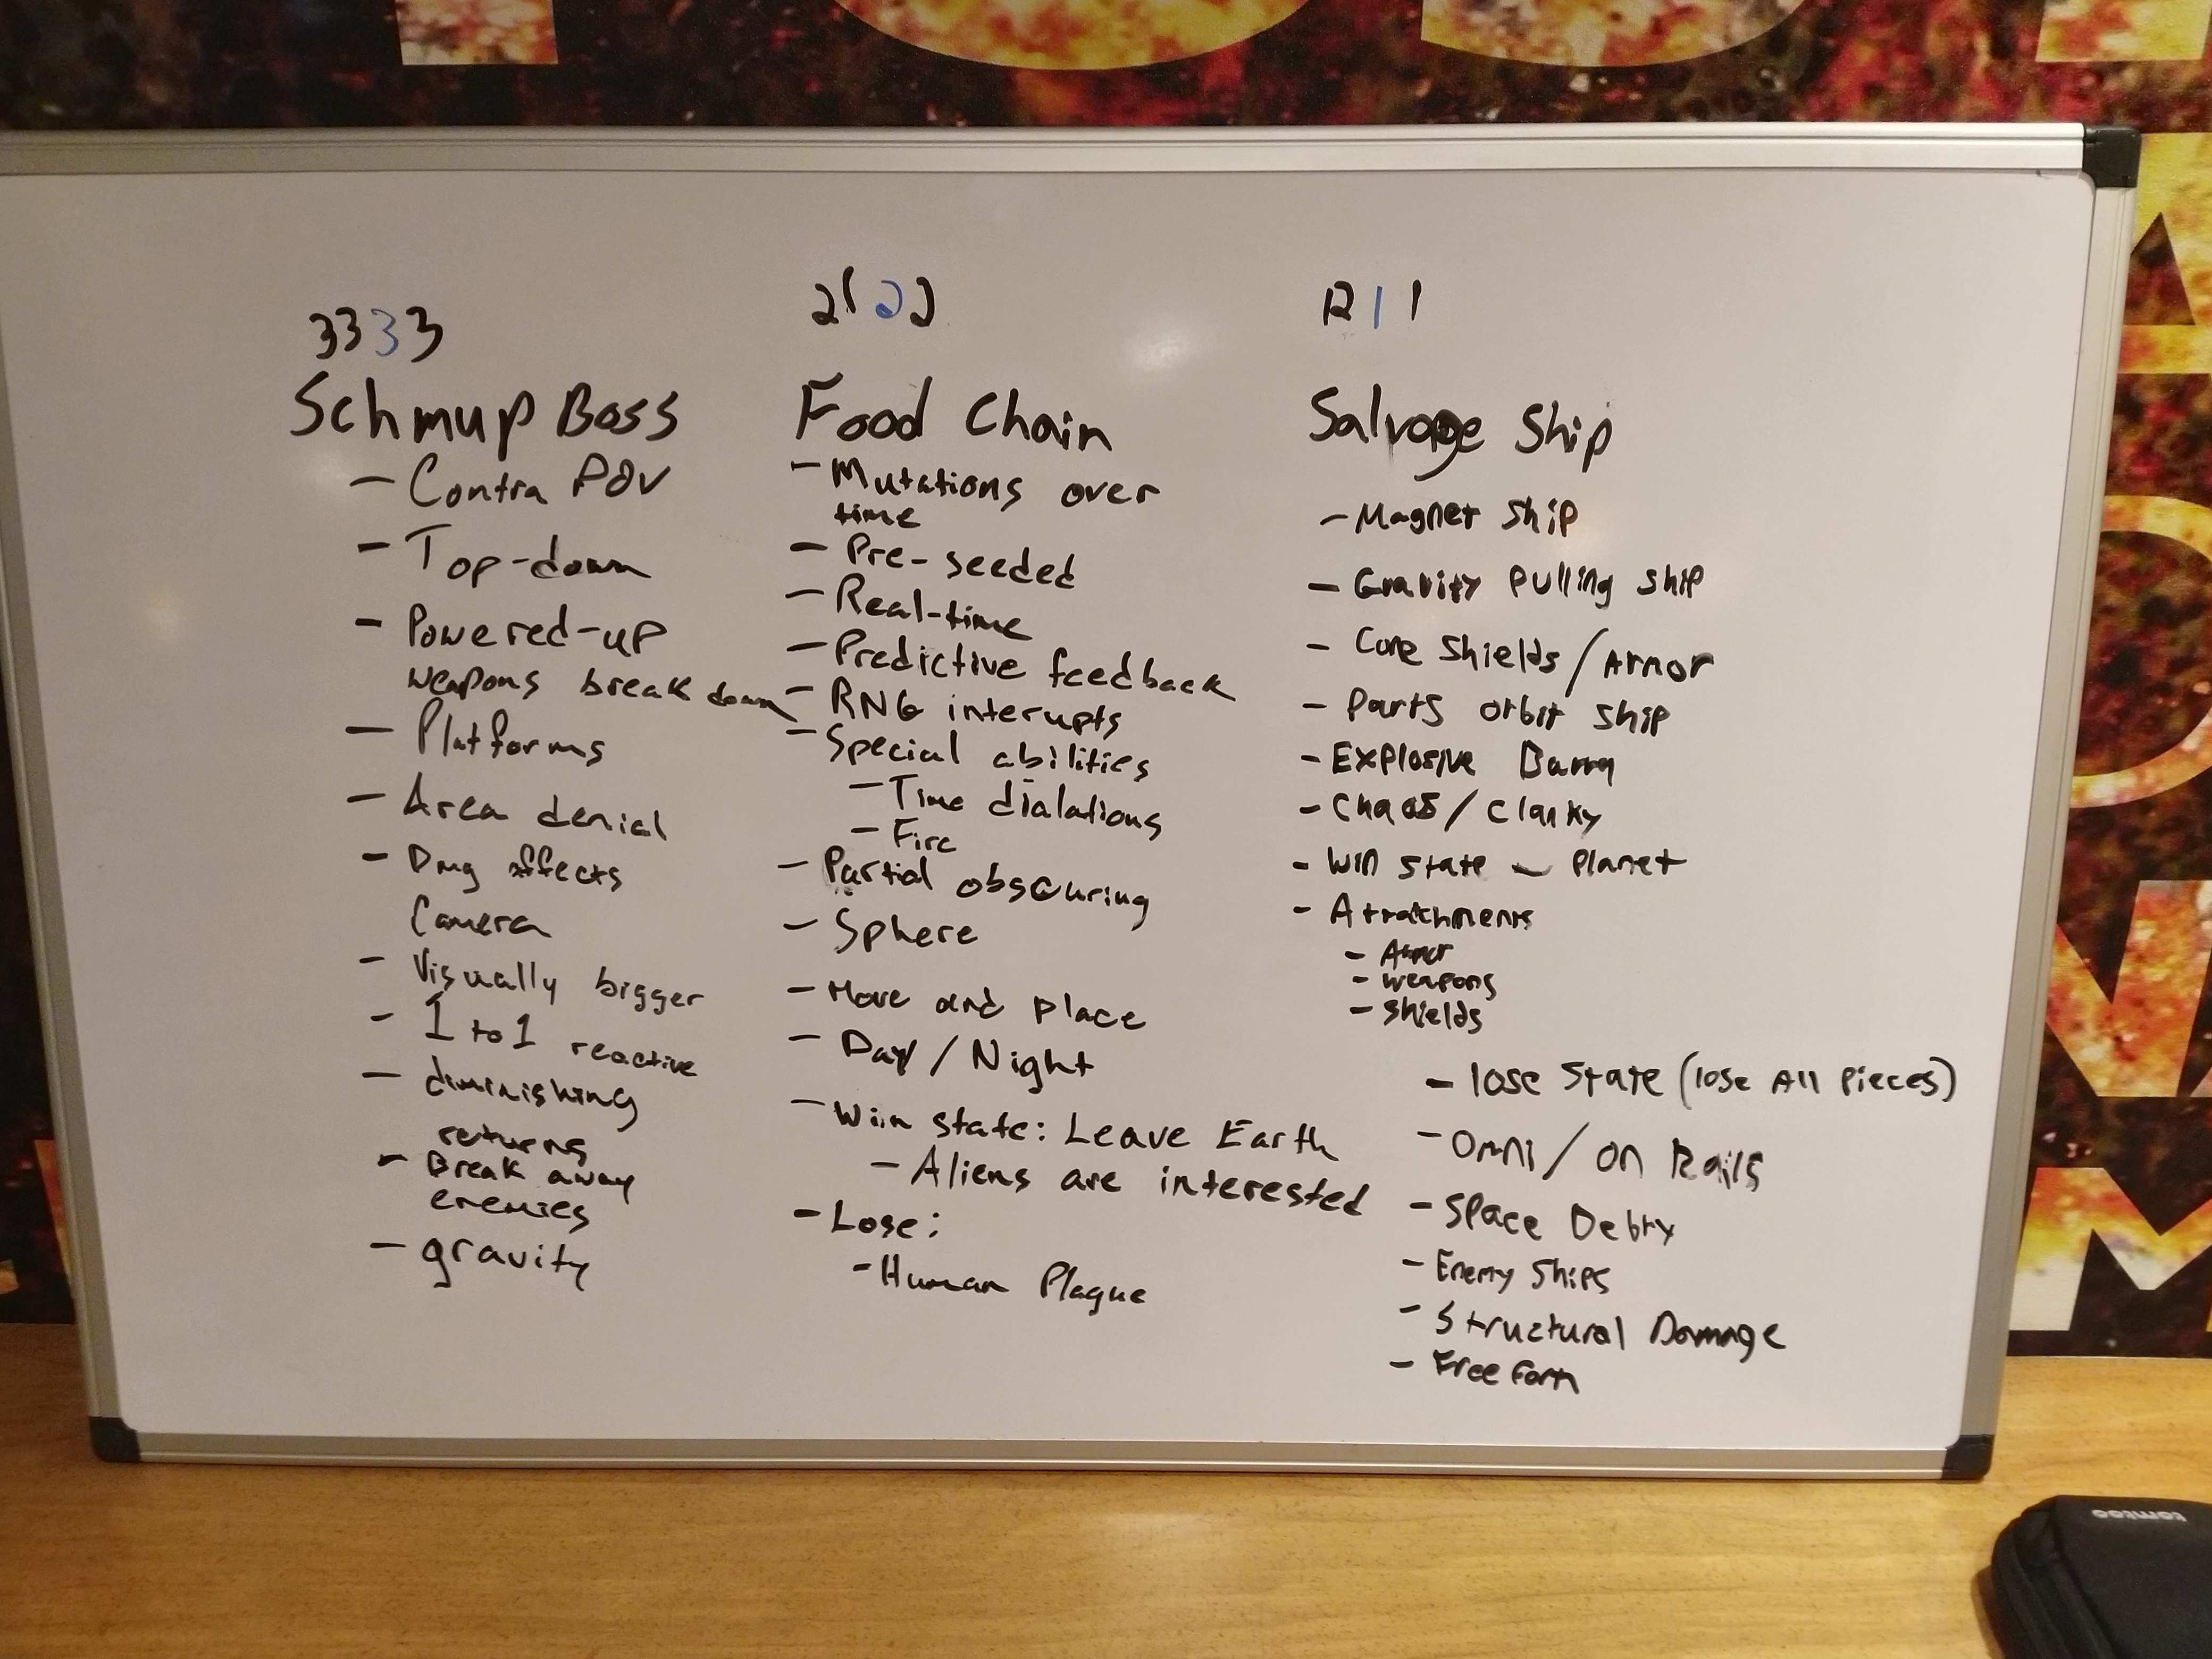 3333
Schmup Boss
- Contra POV
- Top-down
- Powered-up
weapons break down
- Platforms
- Area denial
- Dmg affects
Camera
- Visually bigger
- 1 to 1 reactive
- diminishing
returns
- Break away
enemies
- gravity
2122
Food Chain
- Mutations over
time
- Pre-seeded
- Real-time
- Predictive feedback
- RNG interupts
- Special abilities
- Time dialations
- Fire
- Partial obscuring
- Sphere
- Move and place
- Day / Night
- Win state: Leave Earth
- Aliens are interested
- Lose:
- Human Plague
1211
Salvage Ship
- Magnet Ship
- Gravity Pulling Ship
- Core Shields / Armor
- Parts orbit ship
- Explosive
- Chaos / Clanky
- Win State - Planet
- Attatchments
- Armor
- weapons
- Shields
- lose State (lose All Pieces)
- Omni / On Rails
- Space
- Enemy Ships
- Structural Damage
- Free Form
tomtoc